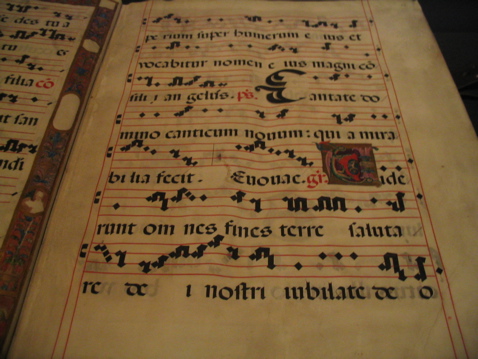 tu a
filia cō
ut san
ndi
pe rium super humerum e ius et
vocabitur nomen e ius magni cō
sili; an gelus. ps. Cantate do
mino canticum novum: qui a mira
bi lia fecit. Evovae. gr. Vide
runt om nes fines terre saluta
re de i nostri iubilate de o